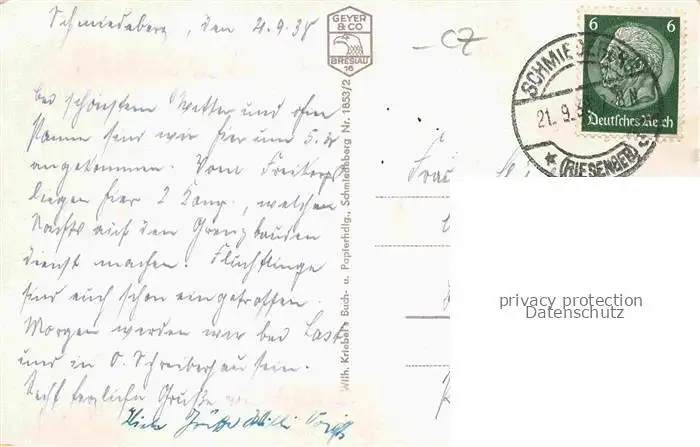 Schmiedeberg, den 21.9.38
bei schönstem Wetter und ohne
Panne sind wir hier um 5.
angekommen. Vom Freikorps
liegen hier 2 Komp., welche
Nachts auf den Grenzbauden
Dienst machen. Flüchtlinge
sind auch schon eingetroffen.
Morgen werden wir bei
und in O. Schreiberhau sein.
Recht herzliche Grüße
Grüße Willi Voigt
GEYER & CO
BRESLAU
16
Wilh. Kriebel's Buch- u. Papierhdlg., Schmiedeberg Nr. 1853/2
CZ
SCHMIEDEBERG
21.9.3
(RIESENGEB)
6 6
Deutsches Reich
Frau
privacy protection
Datenschutz